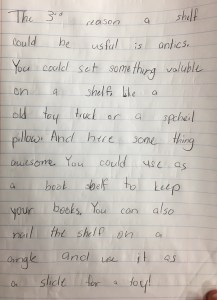 The 3rd reason a shelf
could be usful is antics.
You could set something valuble
on a shelf like a
old toy truck or a speshell
pillow. And here some thing
awesome You could use as
a book shelf to keep
your books. You can also
nail the shelf on a
angle and use it as
a slide for a toy!